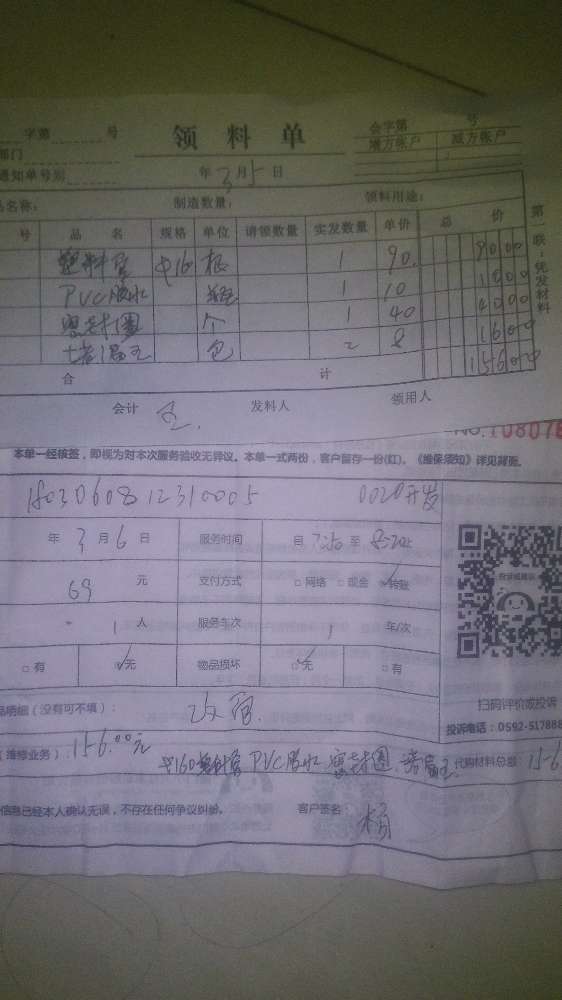 字第 号 领料单 会字第 号
部门 增方帐户 减方帐户
通知单号别 年3月5日
品名称: 制造数量: 领料用途:
号 品名 规格 单位 请领数量 实发数量 单价 总价
塑料管 Φ160 根 1 90. 9000
PVC胶水 1 10 1000
密封圈 个 1 40 4000
堵漏王 包 2 8 1600
合计 15600
会计 发料人 领用人
第 联:凭发材料
NO.108078
本单一经核签,即视为对本次服务验收无异议。本单一式两份,客户留存一份(红)。《维保须知》详见背面。
1803060812310005
年3月6日 服务时间 自7:50至8:20止
69元 支付方式 □网络 □现金 ☑转账
1人 服务车次 1 车/次
□有 ☑无 物品损坏 ☑无 □有
投诉或建议
扫码评价或投诉
品明细(没有可不填):
投诉电话:0592-517888
(维修业务):156.00元 Φ160塑料管 PVC胶水 密封圈、堵漏王 代购材料总额:156
信息已经本人确认无误,不存在任何争议纠纷。 客户签名 杨